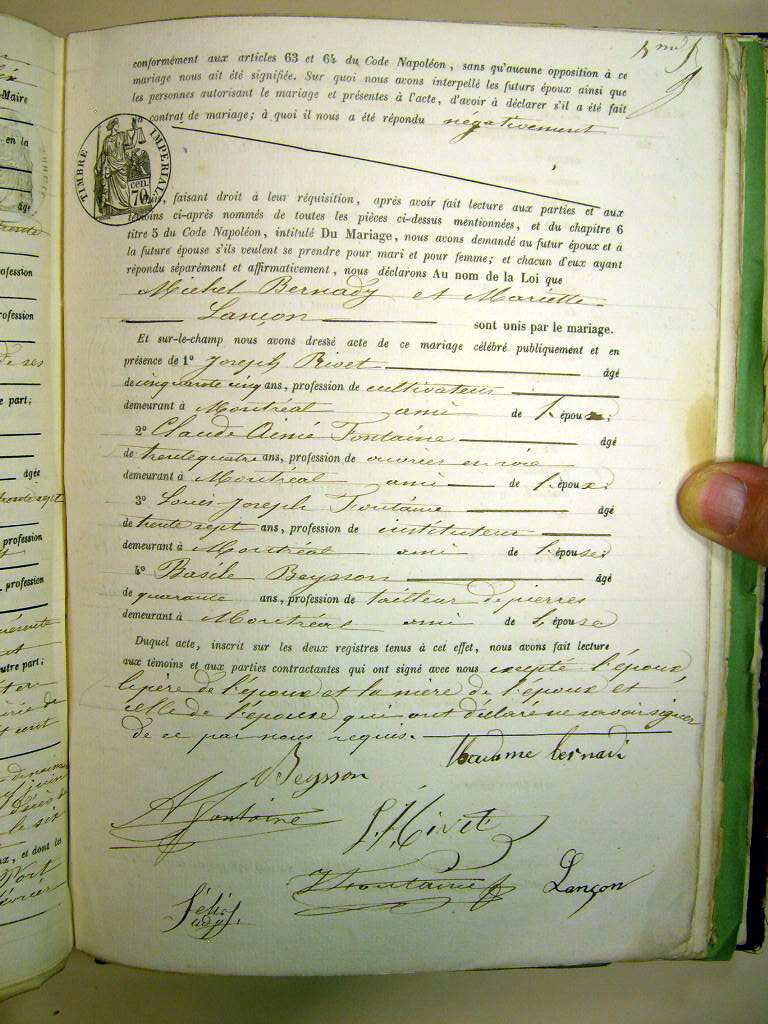 -Maire
en la
âgé
profession
profession
de ses
e part;
âgée
profession
, profession
utre part;
le six
x, et dont la
conformément aux articles 63 et 64 du Code Napoléon, sans qu'aucune opposition à ce
mariage nous ait été signifiée. Sur quoi nous avons interpellé les futurs époux ainsi que
les personnes autorisant le mariage et présentes à l'acte, d'avoir à déclarer s'il a été fait
contrat de mariage; à quoi il nous a été répondu négativement
TIMBRE IMPERIAL
70 cen.
faisant droit à leur réquisition, après avoir fait lecture aux parties et aux
témoins ci-après nommés de toutes les pièces ci-dessus mentionnées, et du chapitre 6
titre 5 du Code Napoléon, intitulé Du Mariage, nous avons demandé au futur époux et à
la future épouse s'ils veulent se prendre pour mari et pour femme; et chacun d'eux ayant
répondu séparément et affirmativement, nous déclarons Au nom de la Loi que
Michel Bernady et Mariette
Lançon sont unis par le mariage.
Et sur-le-champ nous avons dressé acte de ce mariage célébré publiquement et en
présence de 1° Joseph Rivet âgé
de cinquante cinq ans, profession de cultivateur
demeurant à Montréal ami de l'époux;
2° Claude Aimé Fontaine âgé
de trente quatre ans, profession de ouvrier en soie
demeurant à Montréal ami de l'époux;
3° Louis Joseph Fontaine âgé
de trente sept ans, profession de instituteur
demeurant à Montréal ami de l'épouse;
4° Basile Beysson âgé
de quarante ans, profession de tailleur de pierres
demeurant à Montréal ami de l'épouse
Duquel acte, inscrit sur les deux registres tenus à cet effet, nous avons fait lecture
aux témoins et aux parties contractantes qui ont signé avec nous excepté l'époux,
le père de l'époux et la mère de l'époux et
celle de l'épouse qui ont déclaré ne savoir signer
de ce par nous requis.
Beysson
A Fontaine
Fontaine
Lançon